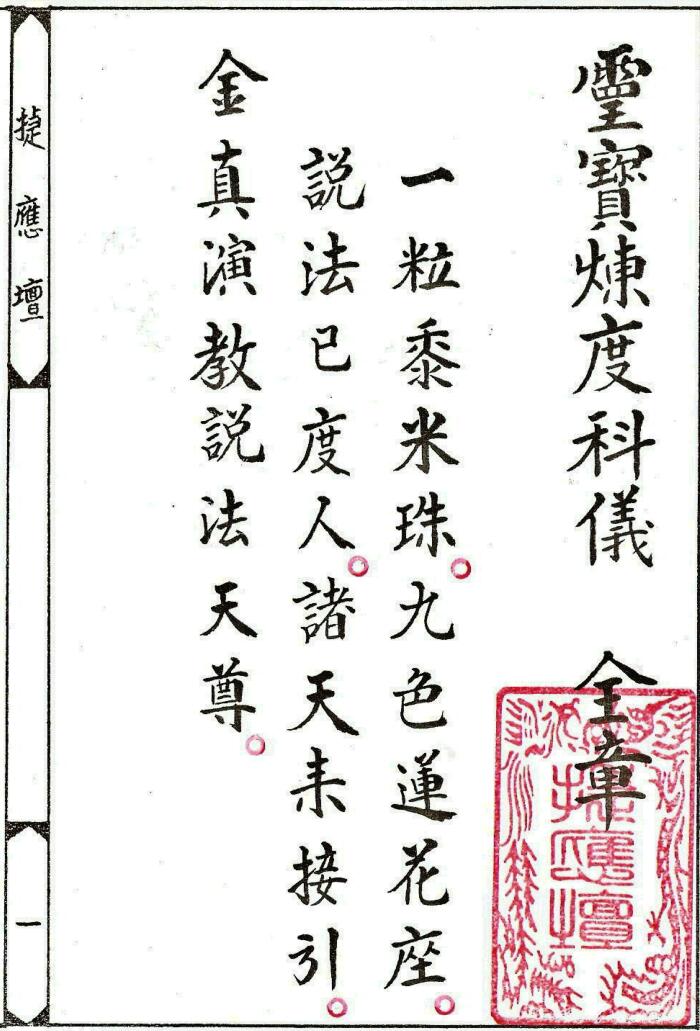 靈寶煉度科儀 全章
一粒黍米珠。九色蓮花座。
説法已度人。諸天来接引。
金真演教説法天尊。
捷應壇
一
捷應壇